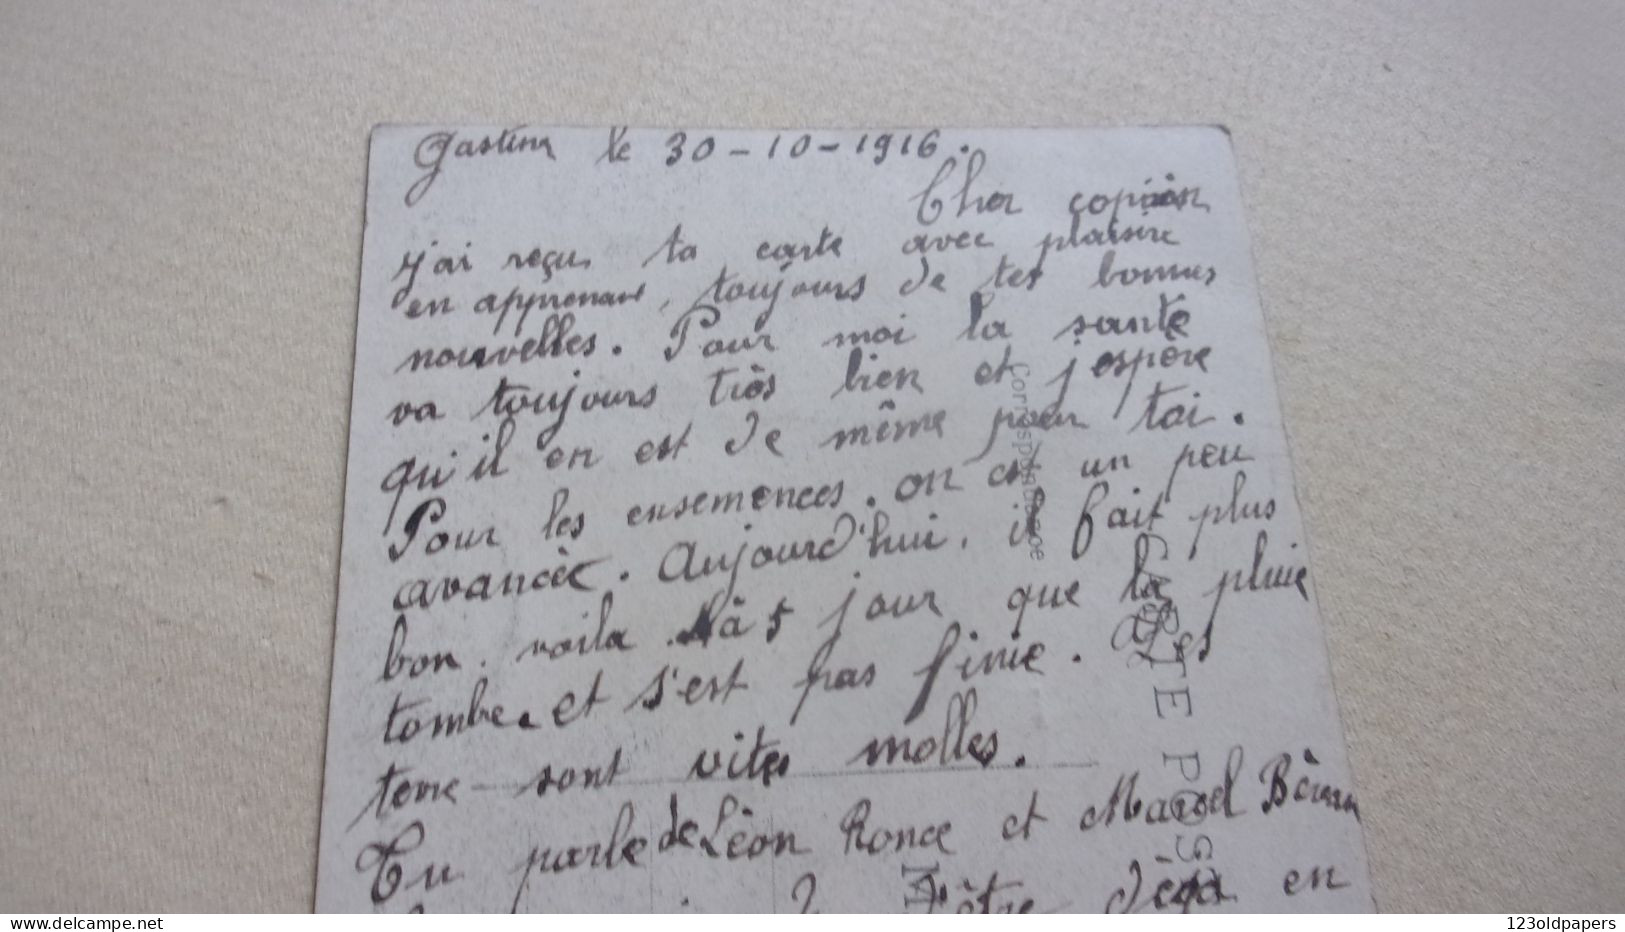 Gastins le 30-10-1916.
Cher copain
j'ai reçu ta carte avec plaisire
en apprenant, toujours de tes bonnes
nouvelles. Pour moi la santé
va toujours très bien et j'espère
qu'il en est de même pour toi.
Pour les ensemences. on est un peu
avancèe. Aujourd'hui, il fait plus
bon. voila à 5 jour que la pluie
tombe. et s'est pas finie. Les
terre sont vites molles.
Tu parle de Lèon Ronce et Marcel
être déja en
Correspondance
CARTE POS
delcampe.net
123oldpapers